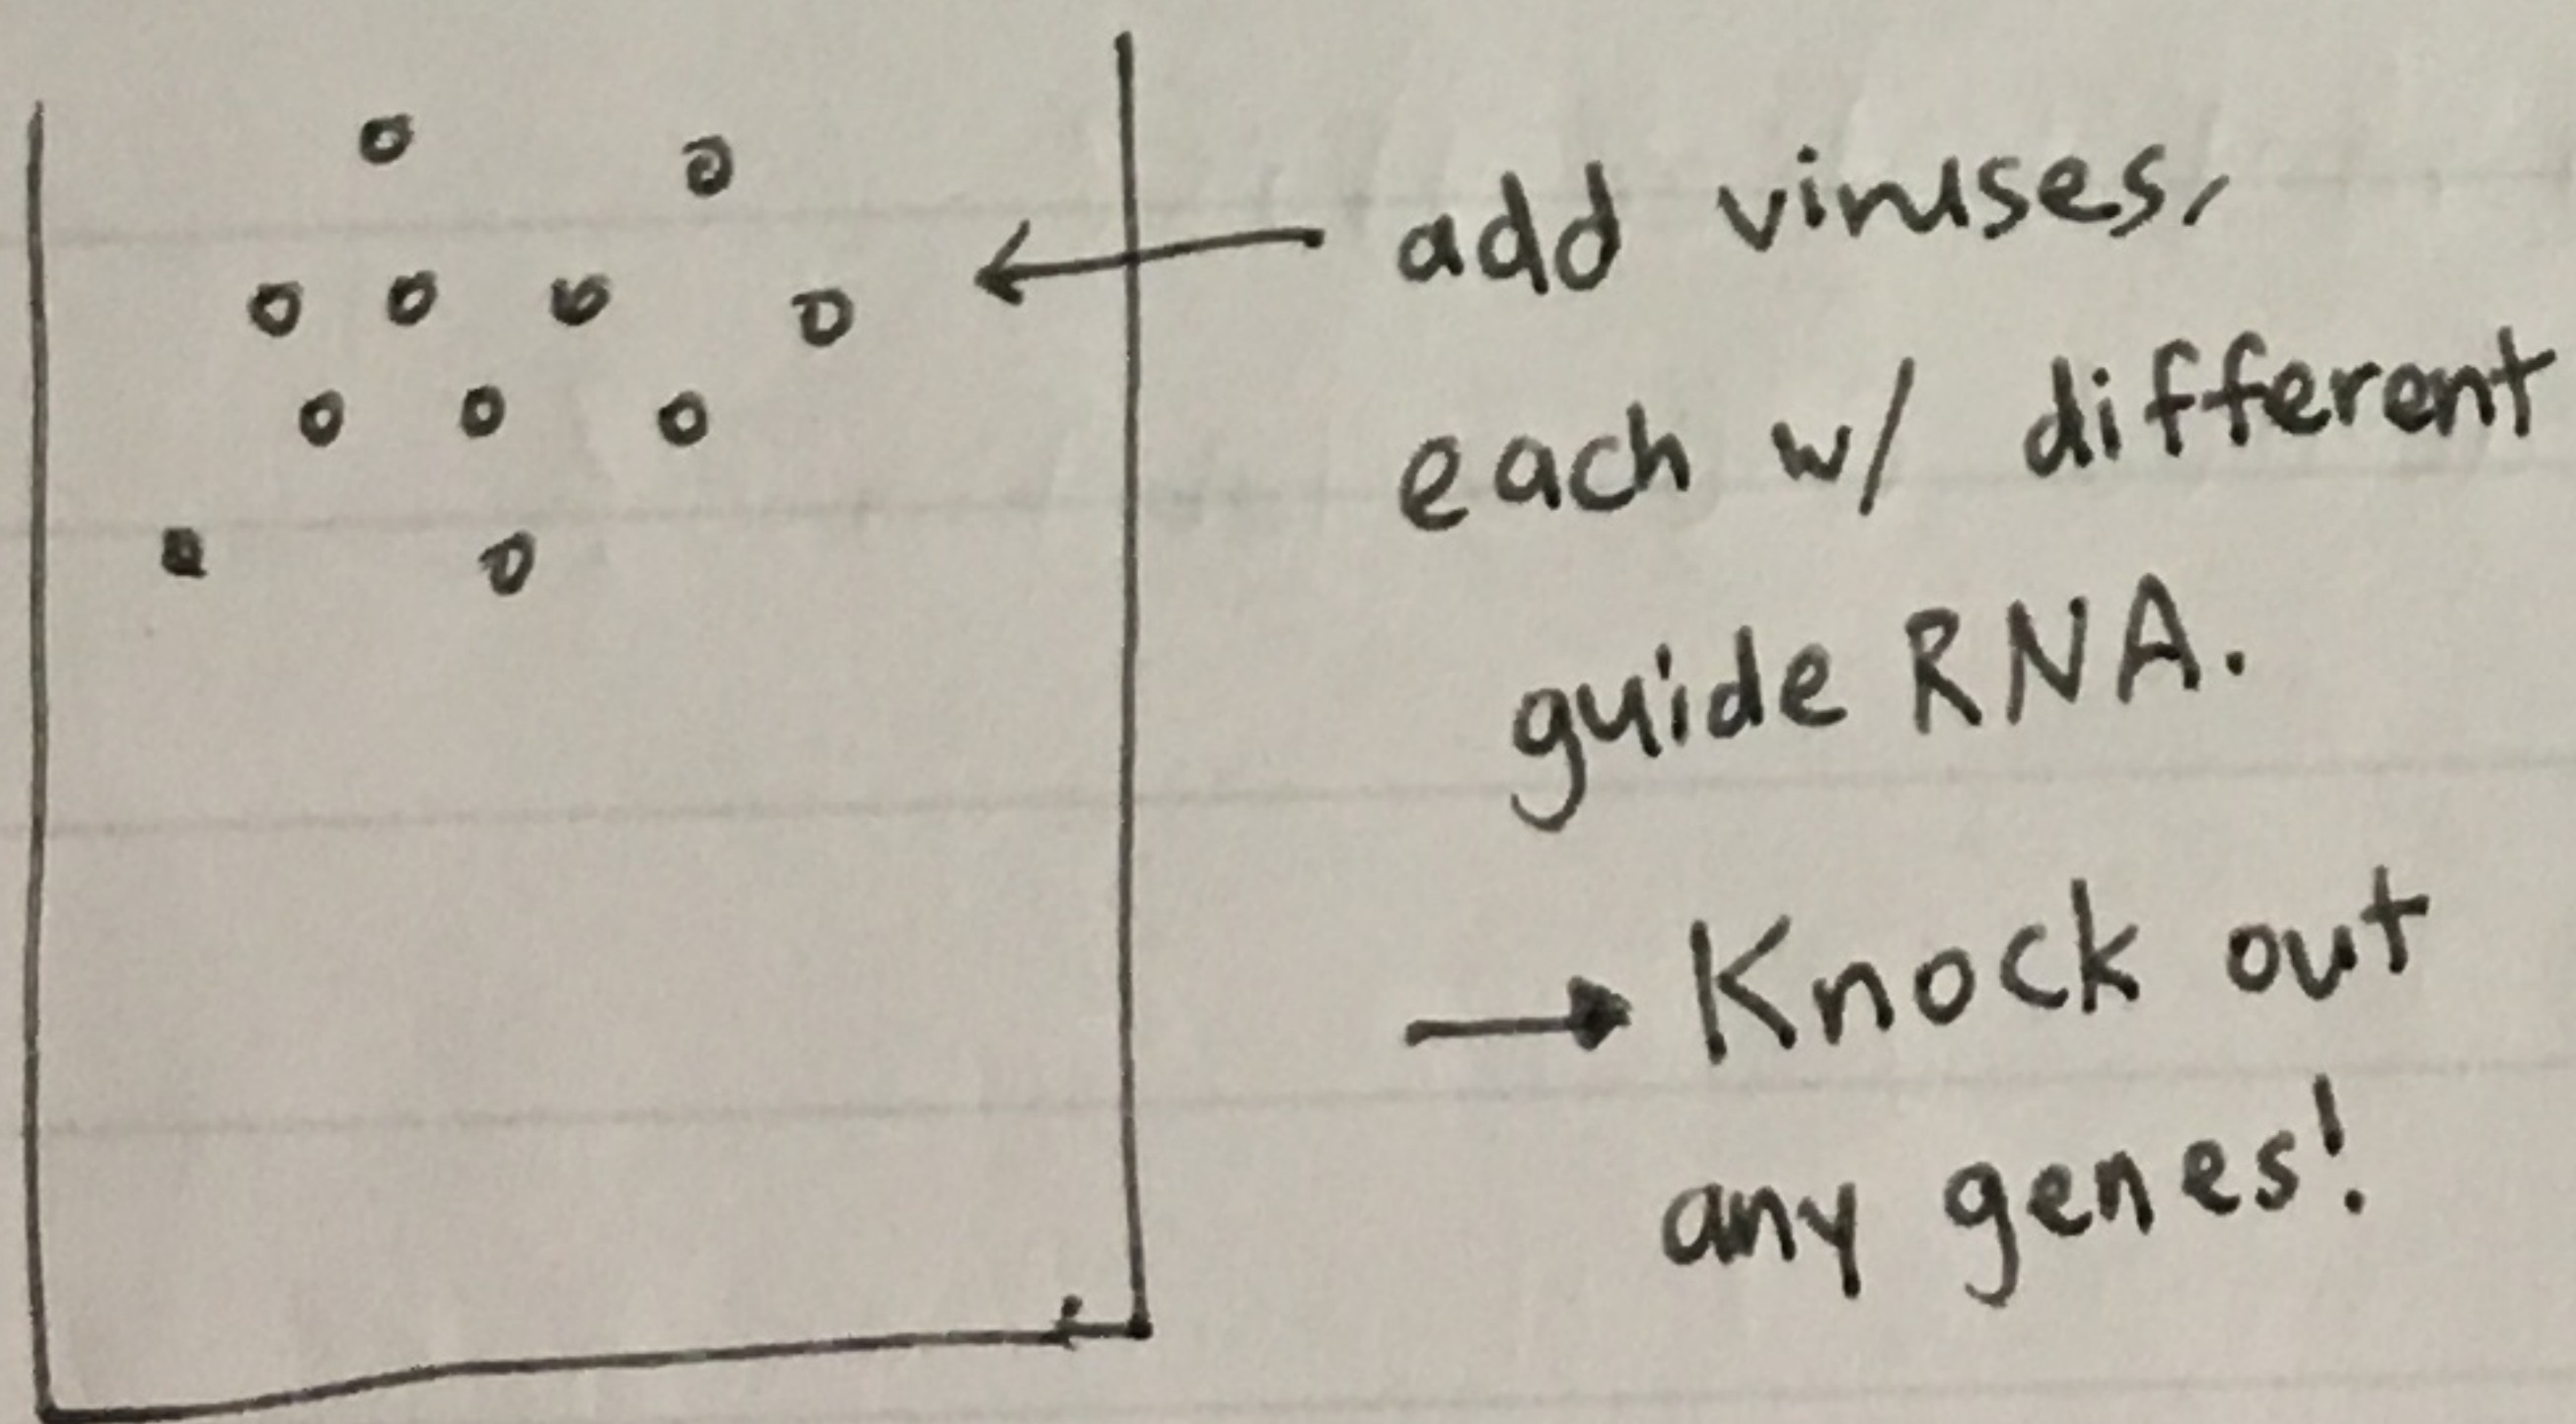 add viruses,
each w/ different
guide RNA.
→ Knock out
any genes!